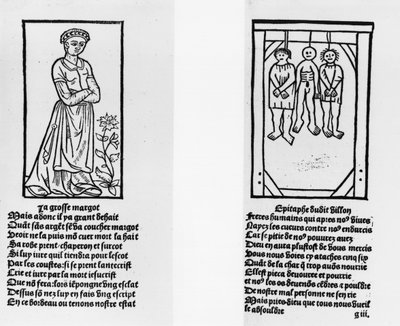 La grosse margot
Mais adonc il ya grant dehait
Quāt sās argēt sē va coucher margot
Veoir ne la puis mō cueur mort la hait
Sa robe prent chaperon et surcot
Si luy iure quil tiendra pour lescot
Par les coustes si se prent lantecrist
Crie et iure par la mort iesucrist
Que nō fera: lors iēpongne ūng esclat
Dessus sō nez luy en fais ūng escript
En ce bordeau ou tenons nostre estat
Epitaphe dudit villon
Freres humains qui apres noꝰ viues
Nayez les cueurs contre noꝰ endurcis
Car se pitie de noꝰ pouurez auez
Dieu en aura plustost de vous mercis
Vous nous voies cy ataches cinq six
Quāt de la char q̄ trop auōs nourrie
Ellest pieca deuouree et pourrie
et noꝰ les os deuenōs cēdres et pouldre
De nostre mal personne ne sen rie
Mais priez dieu que tous nous vueil
le absouldre
g iii.